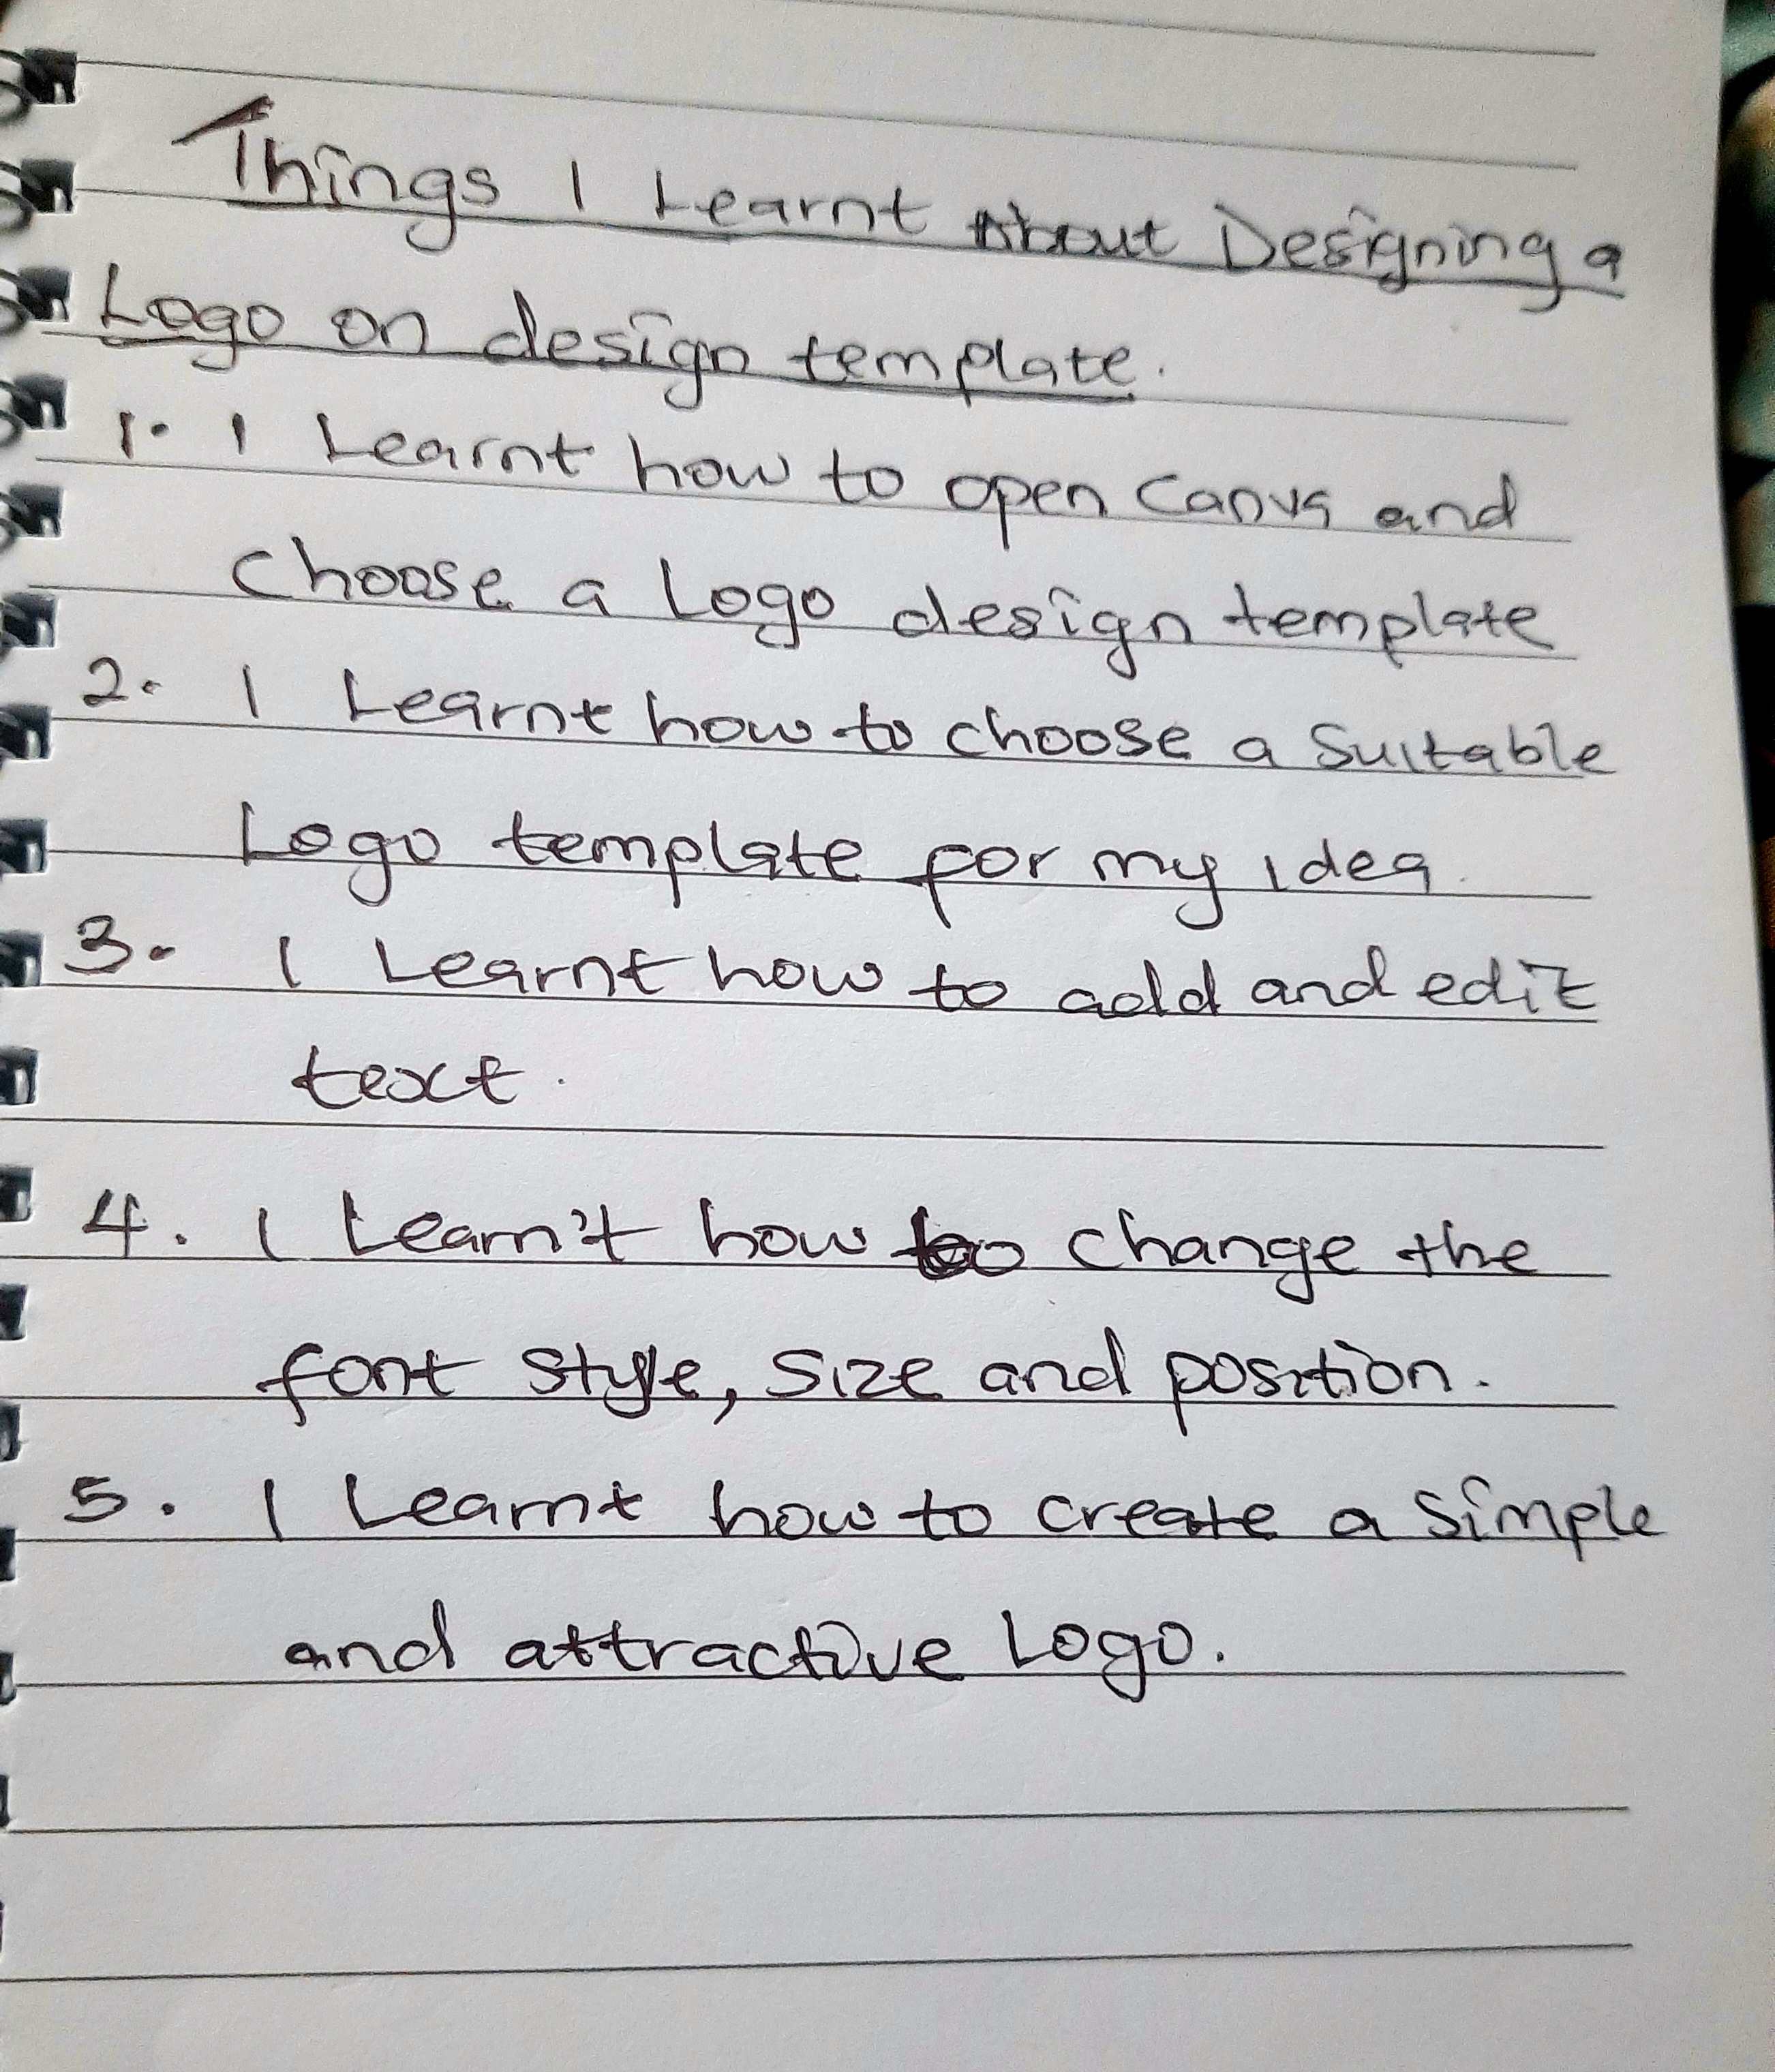 Things I Learnt About Designing a
Logo on design template.
1. I Learnt how to open Canva and
choose a Logo design template
2. I Learnt how to choose a Suitable
Logo template for my idea.
3. I Learnt how to add and edit
text.
4. I Learn't how to change the
font style, Size and position.
5. I Learnt how to create a Simple
and attractive Logo.